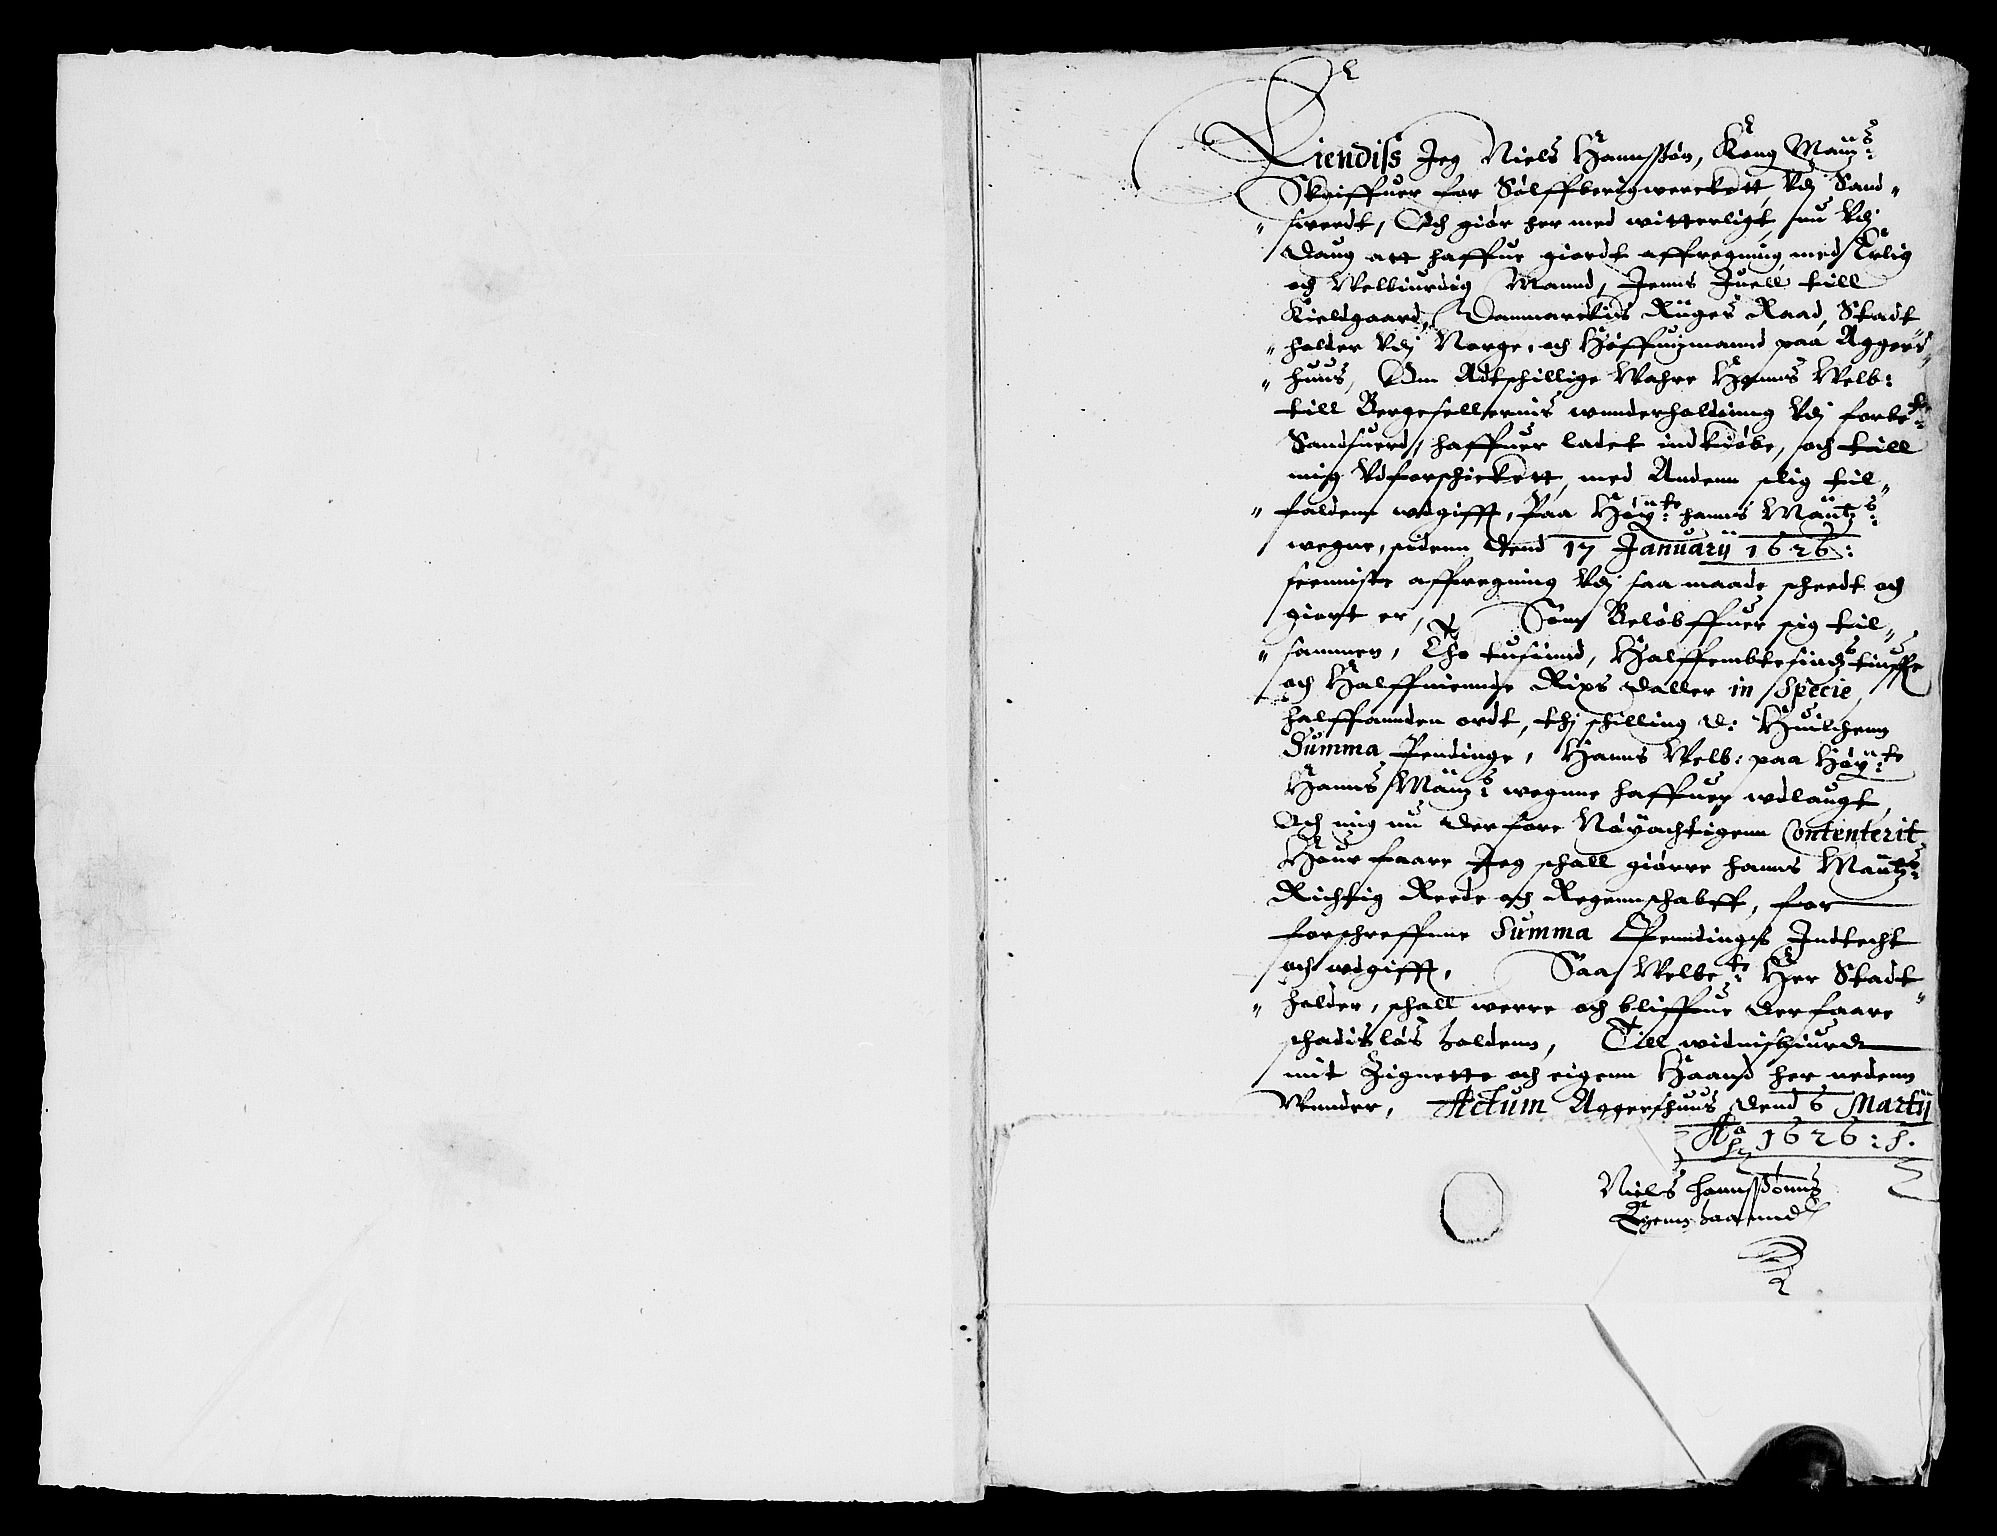 Kiendiss Jeg Niels Hannssøn, Kong Maÿtz:
Skriffuer for Sølffbergwerckett, Vdj Sand„
„suerdt, Och giør her med witterligt, nu Vdj
daug att haffue giordt affregning med Erlig
och Welbiurdig Mannd, Jenns Juell till
Kieldgaard, Danmarckis Rüges Raad, Stadt„
„holder Vdj Norge, och Høffuizmannd paa Aggers„
„huus, Om Adtschillige Wahre Hanns Welb:
till Bergesellernis wnnderholdning Vdj forbe:te
Sandsuerd, haffuer ladet indkiøbe, och till
mig Vdforschickett, med Andenn slig til„
„faldene wdgifft, Paa Høÿ:te hanns Maÿtz:
wegne, sidenn dend 17 Januarij 1626:
seenniste affregning Vdj saa maade scheedt och
giort er, Som Beløbffuer sig til„
„sammen, Tho tusinnd, Halffembtesindztiuffe
och Halffniennde Rixs daller in Specie,
halffannden ordt, thj schilling d: Huilchenn
Summa Pendinge, Hanns Welb: paa Høÿ:te
Hanns Maÿtz: wegnne haffuer wdlaugt,
Och mig nu derfore Nøÿachtigenn Contenterit
Huor faare Jeg schall giørre hanns Maÿtz:
Richtig Reede och Regennschabff, for
forschreffnne Summa Penndinges Indtecht
och wdgifft, Saa Welbe:te Her Stadt„
„holder, schall werre och bliffue derfaare
schadisløs holdenn, Till widnisbiurd
mit Zignette och eigenn Haand her nedenn
Wnnder, Actum Aggershuus dend 6 Martij
Ao 1626:
Niels Hannssønn
Egenn haannd